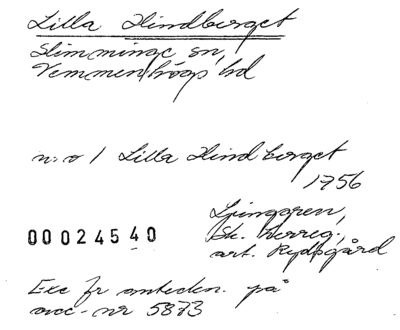 Lilla Hindberget
Slimminge sn,
Vemmenhögs hd
n. o / Lilla Hindberget
1956
Ljunggren,
00024540
Sk. Terreg.,
art. Rydsgård
Exc fr anteckn. på
acc-nr 5873